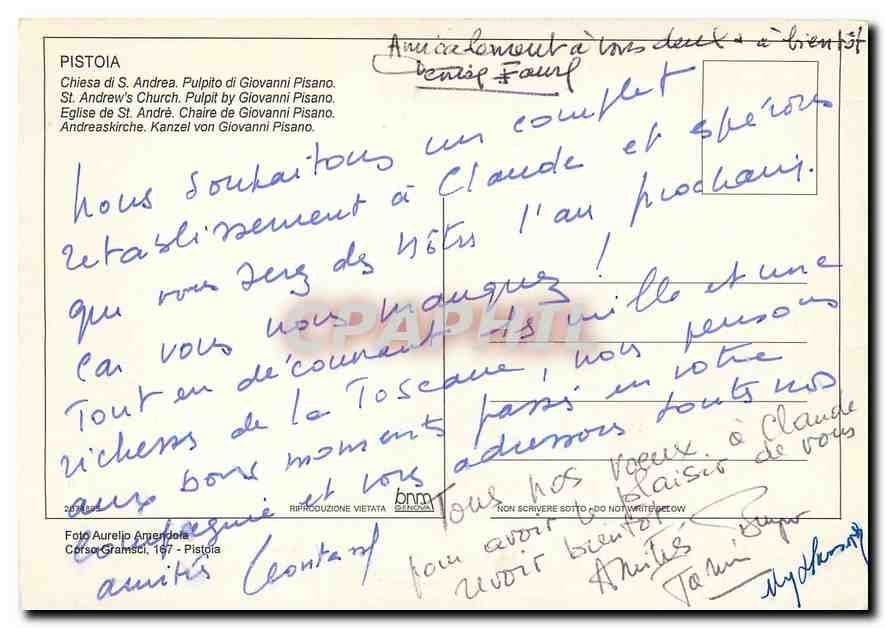 Amicalement à vous deux + à bientôt
Denise Faure
PISTOIA
Chiesa di S. Andrea. Pulpito di Giovanni Pisano.
St. Andrew's Church. Pulpit by Giovanni Pisano.
Eglise de St. Andrè. Chaire de Giovanni Pisano.
Andreaskirche. Kanzel von Giovanni Pisano.
Nous souhaitons un complet
rétablissement à Claude et espérons
que vous serez des nôtres l'an prochain.
Car vous nous manquez !
Tout en découvrant les mille et une
richesses de la Toscane, nous pensons
aux bons moments passés en votre
compagnie et vous adressons toutes nos
amitiés
CPAPHIL
Tous nos voeux à Claude
pour avoir le plaisir de vous
revoir bientôt
Amitiés
RIPRODUZIONE VIETATA
bnm
GENOVA
NON SCRIVERE SOTTO - DO NOT WRITE BELOW
Foto Aurelio Amendola
Corso Gramsci, 167 - Pistoia